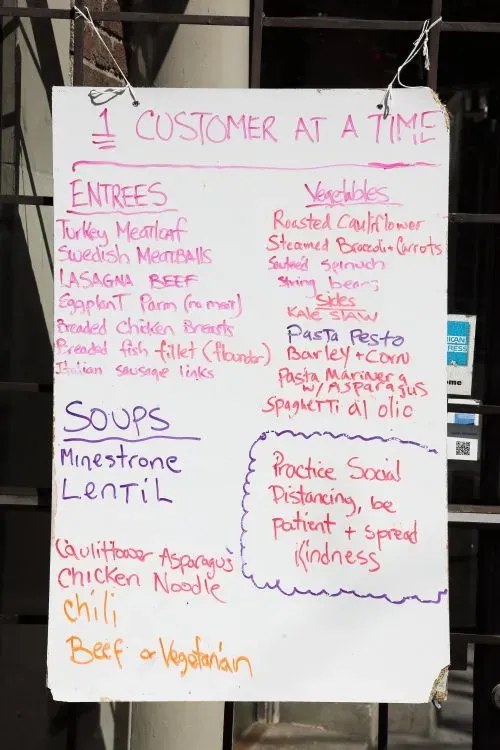 1 CUSTOMER AT A TIME
ENTREES
Turkey Meatloaf
Swedish MeatBalls
LASAGNA BEEF
EggplanT Parm (no meat)
Breaded Chicken Breasts
Breaded fish fillet (flounder)
Italian sausage links
SOUPS
Minestrone
LenTiL
Cauliflower Asparagus
Chicken Noodle
Chili
Beef or Vegetarian
Vegetables
Roasted Cauliflower
Steamed Broccoli + Carrots
Sauteed Spinach
String beans
Sides
KALE SLAW
PasTa PesTo
Barley + Corn
Pasta Marinera
w/ Asparagus
SpagheTTi al olio
Practice Social
Distancing, be
patient + spread
Kindness